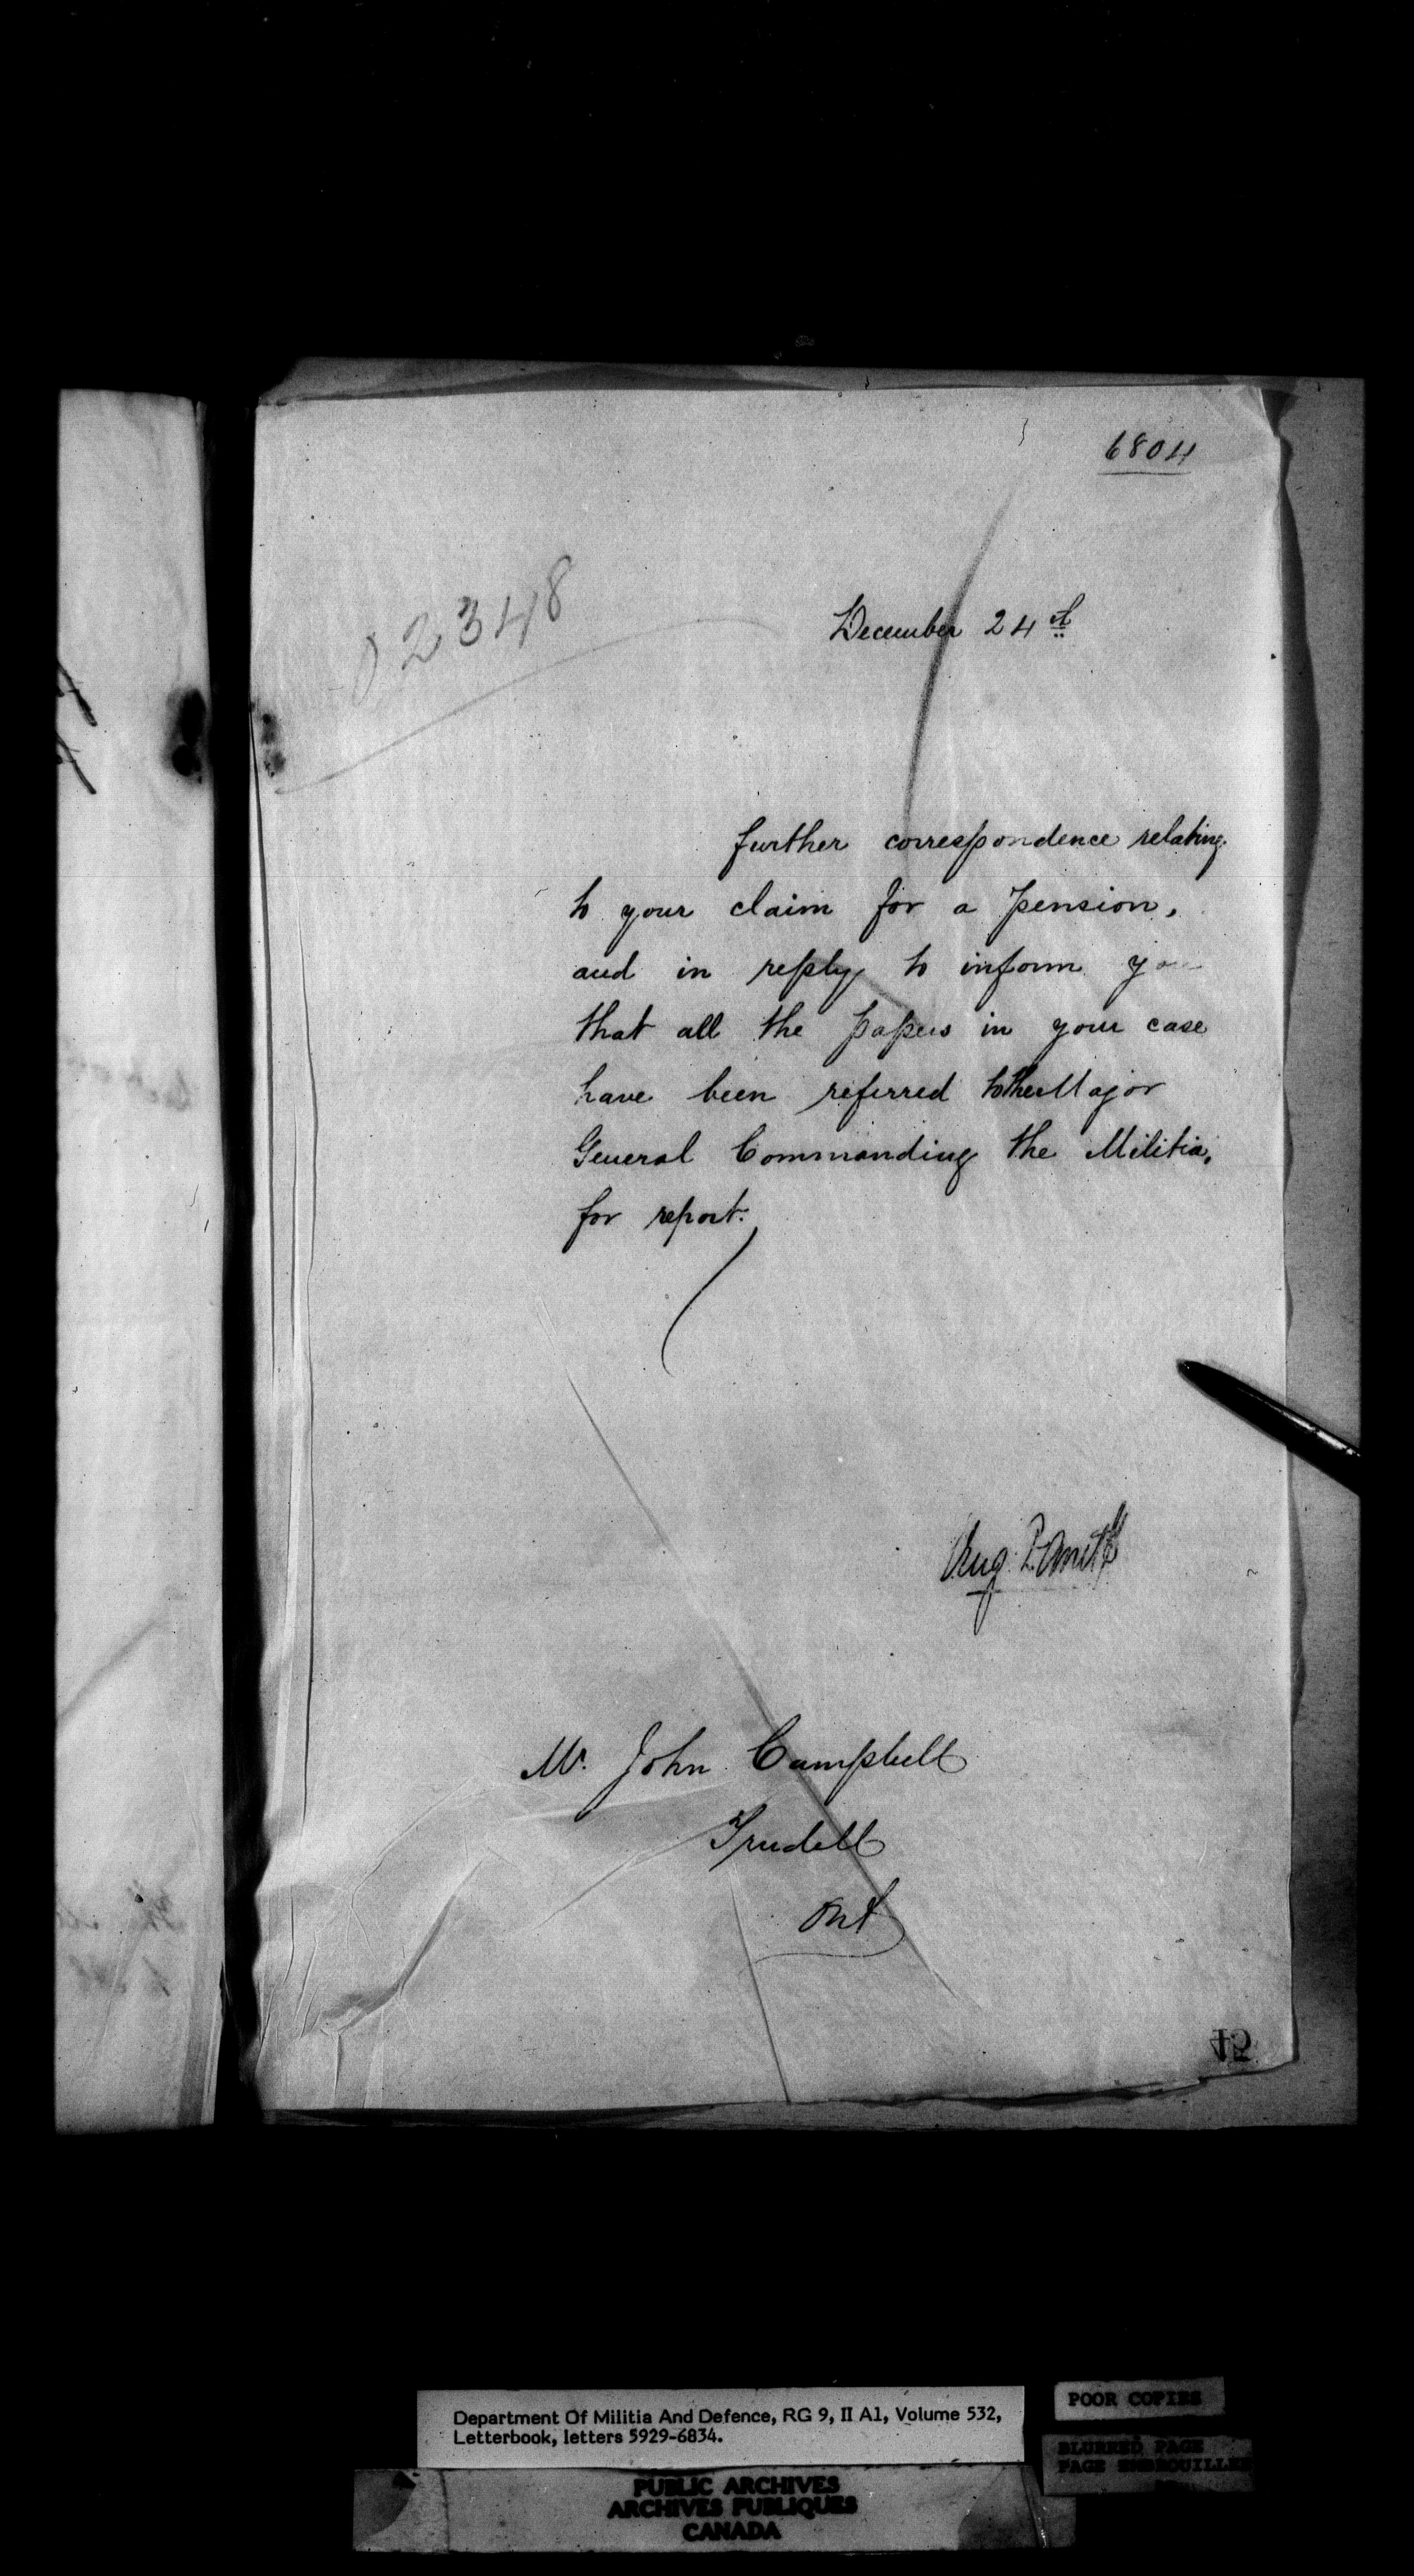 6804
02348
December 24th
further correspondence relating
to your claim for a pension,
and in reply to inform you
that all the papers in your case
have been referred to the Major
General Commanding the Militia,
for report.
Mr. John Campbell
Trudell
Ont
Department Of Militia And Defence, RG 9, II A1, Volume 532,
Letterbook, letters 5929-6834.
POOR COPIES
BLURRED PAGE
PAGE EMBROUILLEE
PUBLIC ARCHIVES
ARCHIVES PUBLIQUES
CANADA